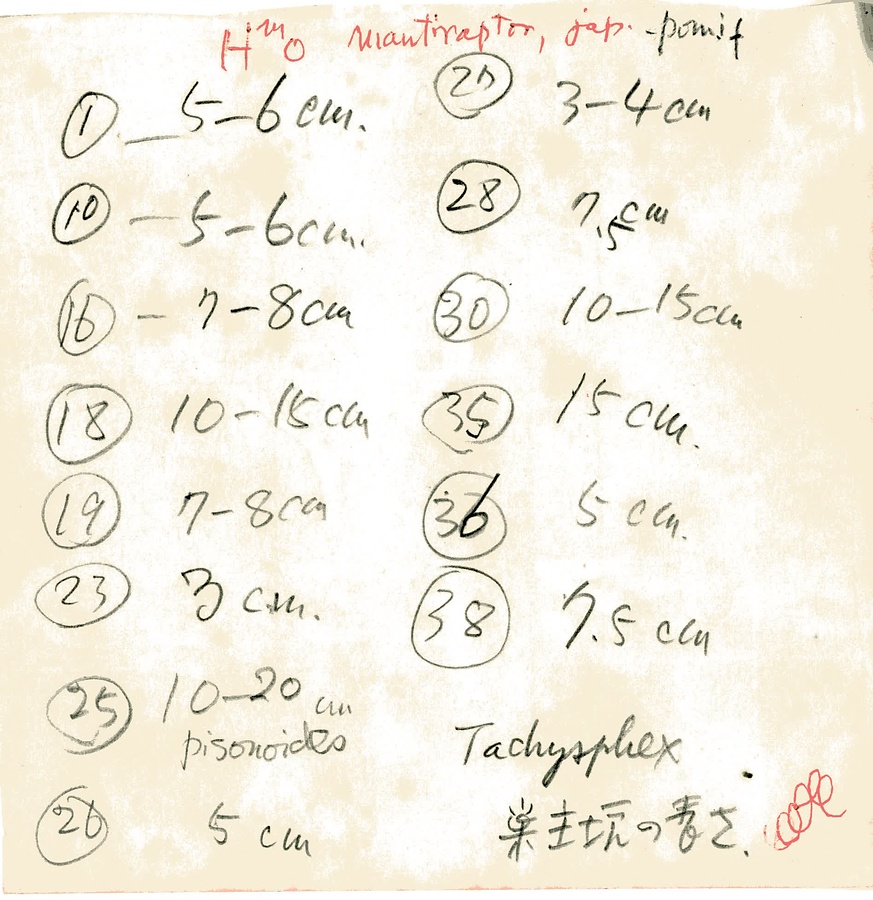 Hᵐo mantiraptor, jap. -pomif
① — 5-6 cm.
⑩ — 5-6 cm.
⑯ - 7-8 cm
⑱ 10-15 cm
⑲ 7-8 cm
㉓ 3 cm.
㉕ 10-20 cm
pisonoides
㉖ 5 cm
3-4 cm
㉘ 7.5 cm
㉚ 10-15 cm
㉟ 15 cm.
㊱ 5 cm.
㊳ 7.5 cm
Tachysphex
巣主坑の青さ.